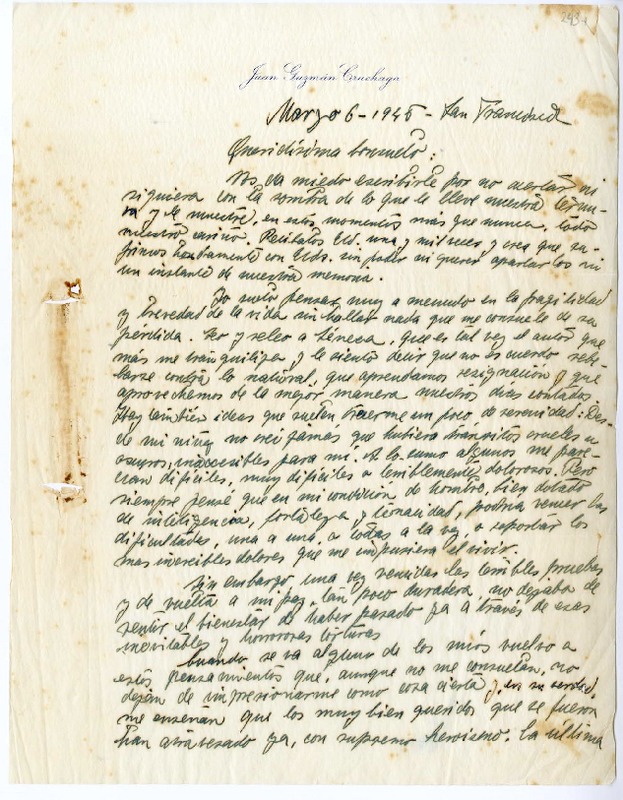 Juan Guzmán Cruchaga
Marzo 6 - 1945 - San Francisco
Queridísima Consuelo:
Nos da miedo escribirle por no acertar ni
siquiera con la sombra de lo que le lleve nuestra ternu-
ra y le muestre, en estos momentos más que nunca, todo
nuestro cariño. Recíbalos Ud. una y mil veces y crea que su-
frimos hondamente con Uds. sin poder ni querer apartarlos ni
un instante de nuestra memoria.
Yo suelo pensar muy a menudo en la fragilidad
y brevedad de la vida sin hallar nada que me consuele de su
pérdida. Leo y releo a Séneca, que es tal vez el autor que
más me tranquiliza, y le siento decir que no es cuerdo rebe-
larse contra lo natural, que aprendamos resignación y que
aprovechemos de la mejor manera nuestros días contados.
Hay también ideas que suelen traerme un poco de serenidad: Des-
de mi niñez no creí jamás que hubiera tránsitos crueles u
oscuros, inaccesibles para mí. A lo sumo algunos me pare-
cían difíciles, muy difíciles o terriblemente dolorosos. Pero
siempre pensé que en mi condición de hombre, bien dotado
de inteligencia, fortaleza y tenacidad, podría vencer las
dificultades, una a una, o todas a la vez, o soportar los
mas increíbles dolores que me impusiera el vivir.
Sin embargo, una vez vencidas las terribles pruebas
y de vuelta a mi paz, tan poco duradera, no dejaba de
sentir el bienestar de haber pasado ya a través de esas
inevitables y horrorosas torturas
Cuando se va alguno de los míos vuelvo a
estos pensamientos que, aunque no me consuelan, no
dejan de impresionarme como cosa cierta y, en su verdad,
me enseñan que los muy bien queridos que se fueron
han atravesado ya, con supremo heroísmo, la última